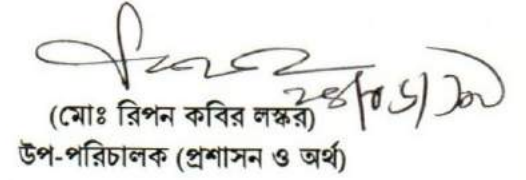 (মোঃ রিপন কবির লস্কর)
উপ-পরিচালক (প্রশাসন ও অর্থ)